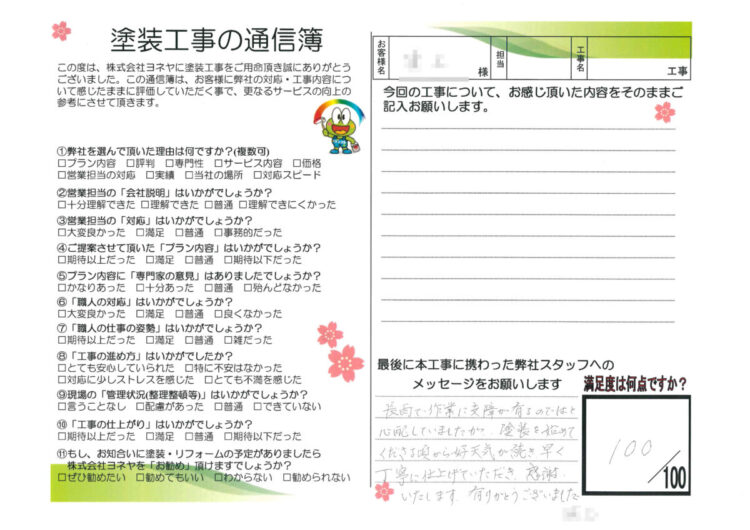 塗装工事の通信簿
この度は、株式会社ヨネヤに塗装工事をご用命頂き誠にありがとう
ございました。この通信簿は、お客様に弊社の対応・工事内容につ
いて感じたままに評価していただく事で、更なるサービスの向上の
参考にさせて頂きます。
①弊社を選んで頂いた理由は何ですか?(複数可)
□プラン内容 □評判 □専門性 □サービス内容 □価格
□営業担当の対応 □実績 □当社の場所 □対応スピード
②営業担当の「会社説明」はいかがでしょうか?
□十分理解できた □理解できた □普通 □理解できにくかった
③営業担当の「対応」はいかがでしょうか?
□大変良かった □満足 □普通 □事務的だった
④ご提案させて頂いた「プラン内容」はいかがでしょうか?
□期待以上だった □満足 □普通 □期待以下だった
⑤プラン内容に「専門家の意見」はありましたでしょうか?
□かなりあった □十分あった □普通 □殆んどなかった
⑥「職人の対応」はいかがでしょうか?
□大変良かった □満足 □普通 □良くなかった
⑦「職人の仕事の姿勢」はいかがでしょうか?
□期待以上だった □満足 □普通 □雑だった
⑧「工事の進め方」はいかがでしたか?
□とても安心していられた □特に不安はなかった
□対応に少しストレスを感じた □とても不満を感じた
⑨現場の「管理状況(整理整頓等)」はいかがでしたか?
□言うことなし □配慮があった □普通 □できていない
⑩「工事の仕上がり」はいかがでしょうか?
□期待以上だった □満足 □普通 □期待以下だった
⑪もし、お知合いに塗装・リフォームの予定がありましたら
株式会社ヨネヤを「お勧め」頂けますでしょうか?
□ぜひ勧めたい □勧めてもいい □わからない □勧められない
お客様名 様 担当 工事名 工事
今回の工事について、お感じ頂いた内容をそのままご
記入お願いします。
最後に本工事に携わった弊社スタッフへの
メッセージをお願いします
長雨で作業に支障が有るのではと
心配していましたが、塗装を始めて
くださる頃から好天気が続き早く
丁寧に仕上げていただき、感謝
いたします。有りがとうございました
満足度は何点ですか?
100
/100